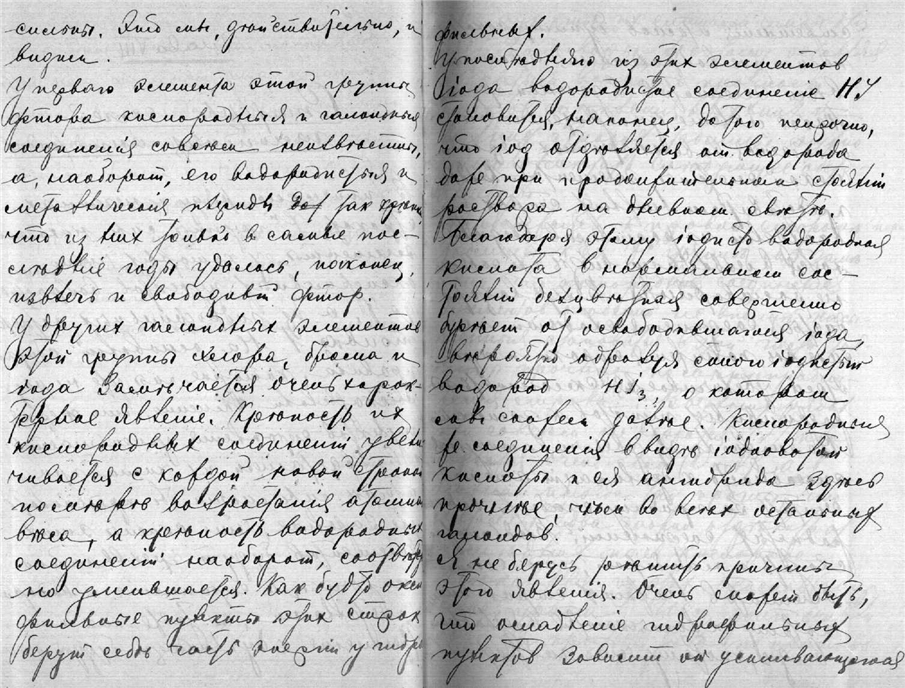 сильны. Это мы, действительно, и
видим.
У перваго элемента этой группы
фтора кислородныя и галоидныя
соединенія совсем неизвѣстны,
а, наоборот, его водородистыя и
металлическія так
что из них только в самые пос-
лѣдніе годы удалось, наконец,
извлечь и свободный фтор.
У других галоидных элементов
этой группы хлора, брома и
иода замѣчается очень харак-
терное явленіе. Крѣпость их
кислородных соединеній увели
чивается с каждой новой строкой
по мѣрѣ возрастанія атомнаго
вѣса, а крѣпость водородных
соединеній наоборот, соотвѣтствен
но уменьшается. Как будто окси
фильные пункты этих строк
берут себѣ часть энергіи у гидро
фильных.
У послѣдняго из этих элементов
іода водородистое соединеніе HJ
становится, наконец, до того непрочно,
что іод отдѣляется от водорода
даже при продолжительном стояніи
раствора на дневном свѣтѣ.
Благодаря этому іодисто водородная
кислота в нормальном сос-
тояніи безцвѣтная совершенно
буреет от освободившагося іода,
вѣроятно образуя много іодистый
водород HJ₃, о котором
я говорю далее. Кислородныя
же соединенія в видѣ іодноватой
кислоты и ея ангидрида здѣсь
прочнѣе, чѣм во всѣх остальных
галоидов.
Я не берусь рѣшить причины
этого явленія. Очень может быть,
что ослабленіе гидрофильных
пунктов зависит от усиливающагося